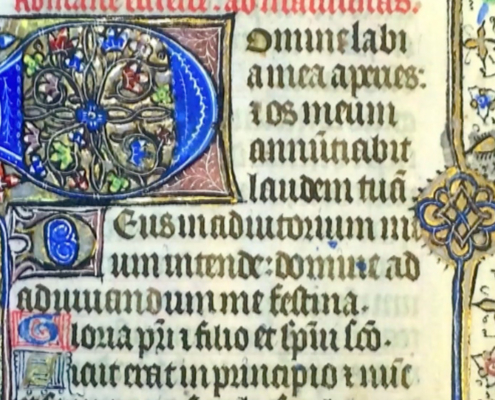 Romane curie. ad matutinas.
Domine labi
a mea aperies:
⁊ os meum
annūtiabit
laudem tuā
Deus in adiutorium me
um intende: domine ad
adiuuandum me festina.
Gloria pr̄i ⁊ filio et sp̄iu sc̄o.
Sicut erat in principio ⁊ nūc